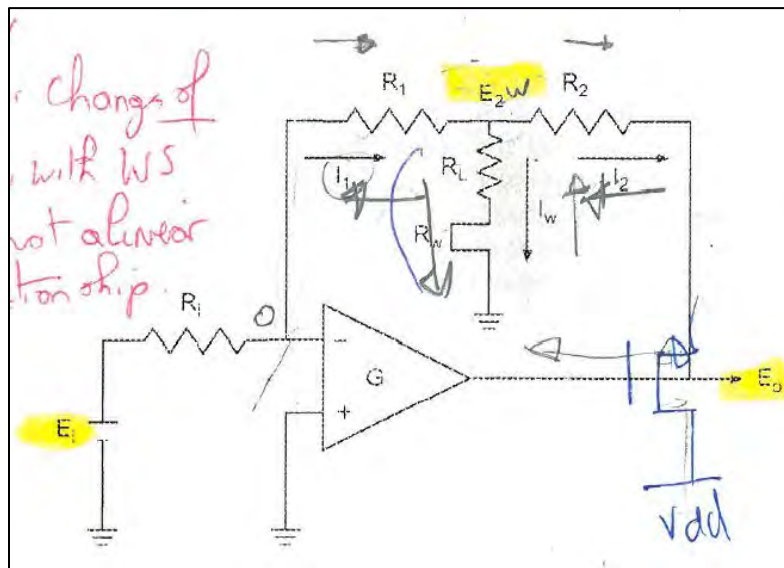 change of
with WS
not a linear
tionship.
R1
E2 W
R2
I1
RL
Iw
I2
Rw
Ri
0
−
G
+
Ei
Eo
Vdd